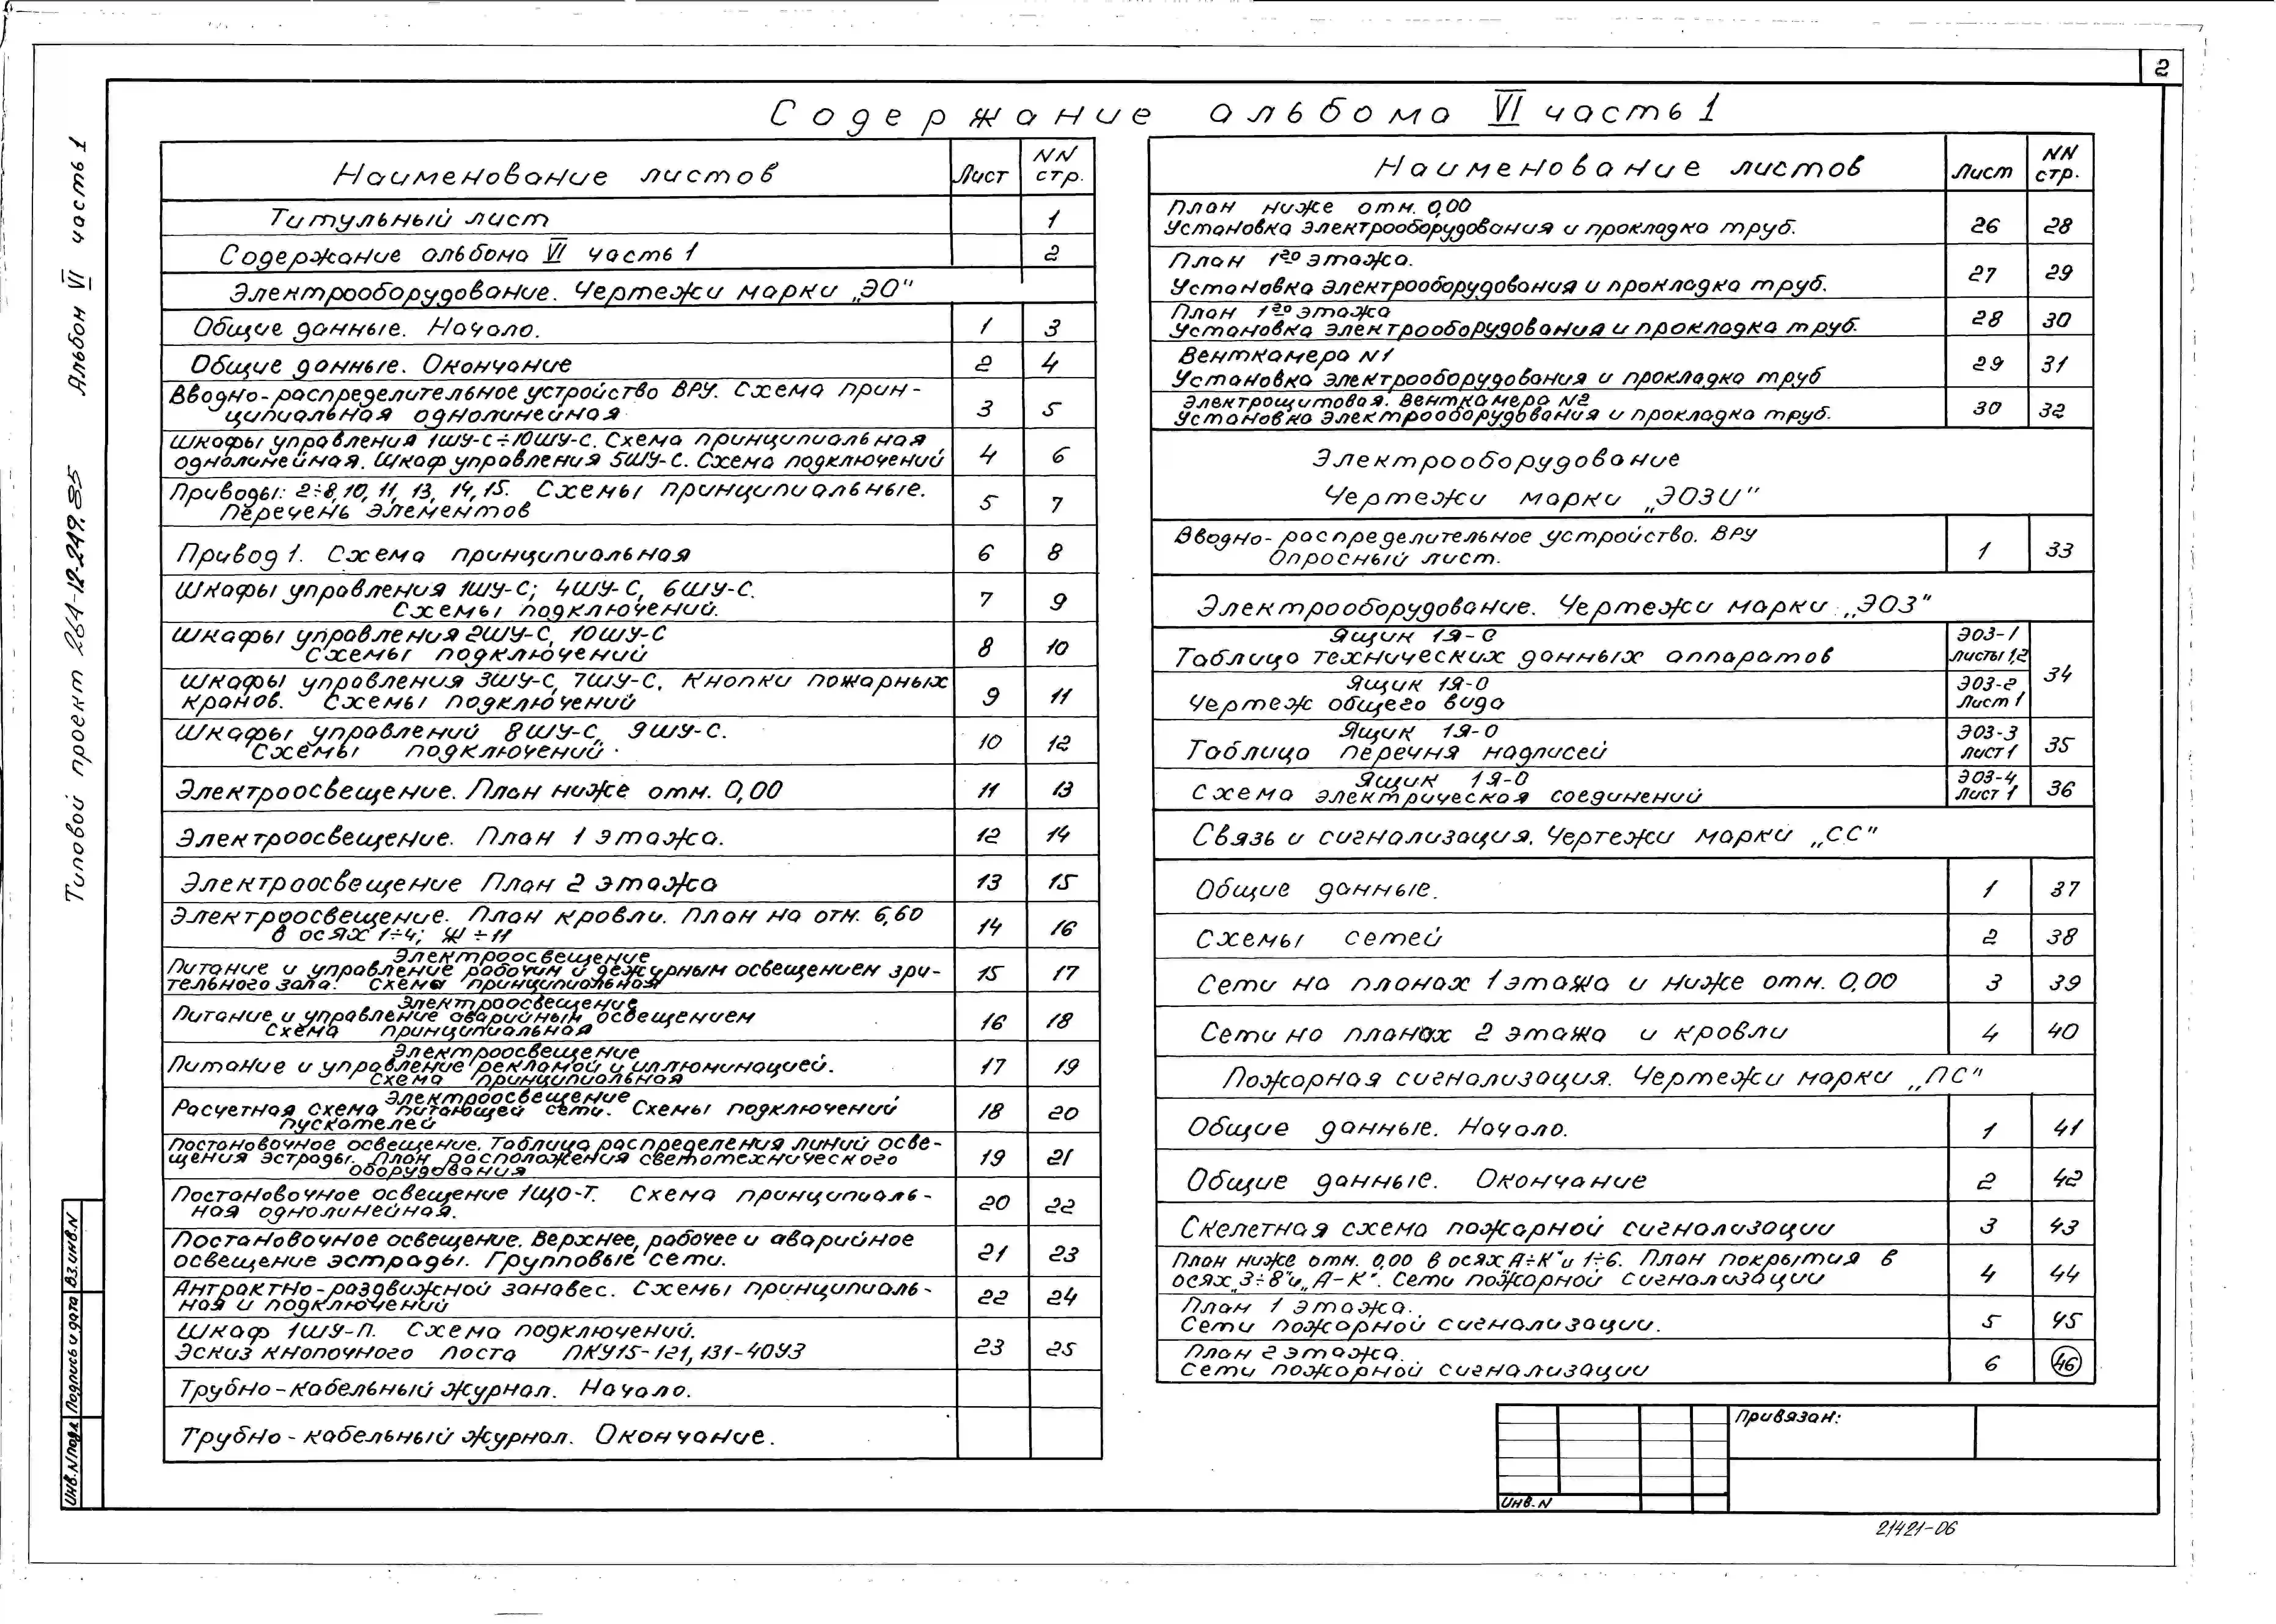 2
Содержание альбома VI часть 1
Альбом VI часть 1
Типовой проект 264-12-249.85
Наименование листов Лист NN стр.
Титульный лист 1
Содержание альбома VI часть 1 2
Электрооборудование. Чертежи марки „ЭО"
Общие данные. Начало. 1 3
Общие данные. Окончание 2 4
Вводно-распределительное устройство ВРУ. Схема прин-
ципиальная однолинейная 3 5
Шкафы управления 1ШУ-С÷10ШУ-С. Схема принципиальная
однолинейная. Шкаф управления 5ШУ-С. Схема подключений 4 6
Приводы: 2÷8, 10, 11, 13, 14, 15. Схемы принципиальные.
Перечень элементов 5 7
Привод 1. Схема принципиальная 6 8
Шкафы управления 1ШУ-С; 4ШУ-С, 6ШУ-С.
Схемы подключений. 7 9
Шкафы управления 2ШУ-С, 10ШУ-С
Схемы подключений 8 10
Шкафы управления 3ШУ-С, 7ШУ-С, Кнопки пожарных
кранов. Схемы подключений 9 11
Шкафы управлений 8ШУ-С, 9ШУ-С.
Схемы подключений 10 12
Электроосвещение. План ниже отм. 0,00 11 13
Электроосвещение. План 1 этажа. 12 14
Электроосвещение План 2 этажа 13 15
Электроосвещение. План кровли. План на отм. 6,60
в осях 1÷4; Ж÷11 14 16
Электроосвещение
Питание и управление рабочим и дежурным освещением зри-
тельного зала. Схемы принципиальная 15 17
Электроосвещение
Питание и управление аварийным освещением
Схема принципиальная 16 18
Электроосвещение
Питание и управление рекламой и иллюминацией.
Схема принципиальная 17 19
Электроосвещение
Расчетная схема питающей сети. Схемы подключений
пускателей 18 20
Постановочное освещение. Таблица распределения линий осве-
щения эстрады. План расположения светотехнического
оборудования 19 21
Постановочное освещение 1ЩО-Т. Схема принципиаль-
ная однолинейная. 20 22
Постановочное освещение. Верхнее, рабочее и аварийное
освещение эстрады. Групповые сети. 21 23
Антрактно-раздвижной занавес. Схемы принципиаль-
ная и подключений 22 24
Шкаф 1ШУ-П. Схема подключений.
Эскиз кнопочного поста ПКУ15-121, 131-40У3 23 25
Трубно-кабельный журнал. Начало.
Трубно-кабельный журнал. Окончание.
Наименование листов Лист NN стр.
План ниже отм. 0,00
Установка электрооборудования и прокладка труб. 26 28
План 1го этажа.
Установка электрооборудования и прокладка труб. 27 29
План 1го этажа
Установка электрооборудования и прокладка труб. 28 30
Венткамера N1
Установка электрооборудования и прокладка труб 29 31
Электрощитовая. Венткамера N2
Установка электрооборудования и прокладка труб. 30 32
Электрооборудование
Чертежи марки „ЭОЗИ"
Вводно-распределительное устройство. ВРУ
Опросный лист. 1 33
Электрооборудование. Чертежи марки „ЭОЗ"
Ящик 1Я-О
Таблица технических данных аппаратов ЭОЗ-1 листы 1,2 34
Ящик 1Я-О
Чертеж общего вида ЭОЗ-2 Лист 1
Ящик 1Я-О
Таблица перечня надписей ЭОЗ-3 лист 1 35
Ящик 1Я-О
Схема электрическая соединений ЭОЗ-4 Лист 1 36
Связь и сигнализация. Чертежи марки „СС"
Общие данные. 1 37
Схемы сетей 2 38
Сети на планах 1 этажа и ниже отм. 0,00 3 39
Сети на планах 2 этажа и кровли 4 40
Пожарная сигнализация. Чертежи марки „ПС"
Общие данные. Начало. 1 41
Общие данные. Окончание 2 42
Скелетная схема пожарной сигнализации 3 43
План ниже отм. 0,00 в осях А÷К" и 1÷6. План покрытия в
осях „3÷8"и „А-К". Сети пожарной сигнализации 4 44
План 1 этажа.
Сети пожарной сигнализации. 5 45
План 2 этажа.
Сети пожарной сигнализации 6 46
Привязан:
Инв. N
Инв.N подл. Подпись и дата Вз.инв.N
21421-06